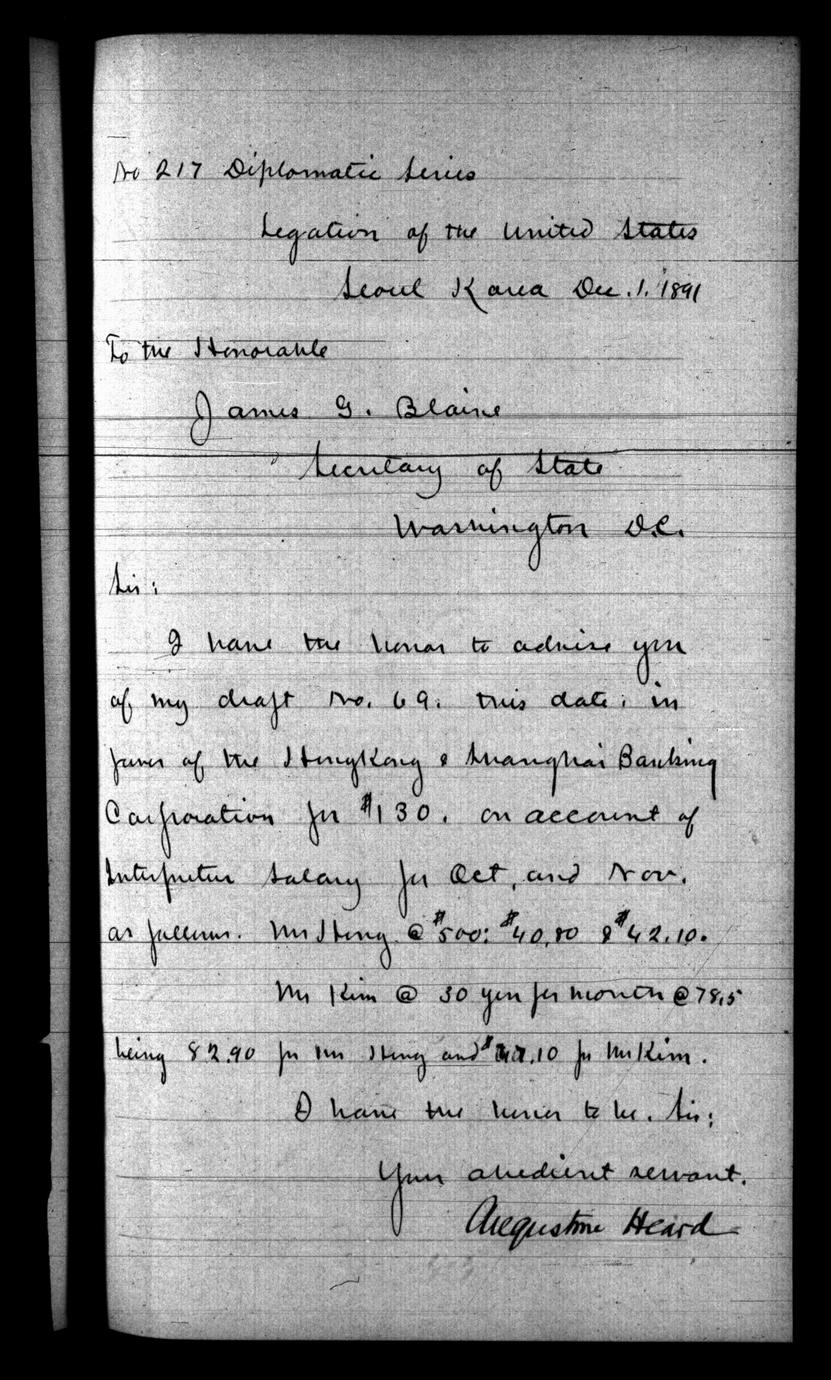 No 217 Diplomatic Series
Legation of the United States
Seoul Korea Dec. 1. 1891
To the Honorable
James G. Blaine
Secretary of State
Washington D.C.
Sir:
I have the honor to advise you
of my draft No. 69. this date. in
favor of the HongKong & Shanghai Banking
Corporation for $130. on account of
Interpreter salary for Oct, and Nov.
as follows. Mr Hong @ $500: $40.80 & $42.10.
Mr Kim @ 30 yen per month @ 78.5
being 82.90 for Mr Hong and $47.10 for Mr Kim.
I have the honor to be. Sir:
Your obedient servant.
Augustine Heard